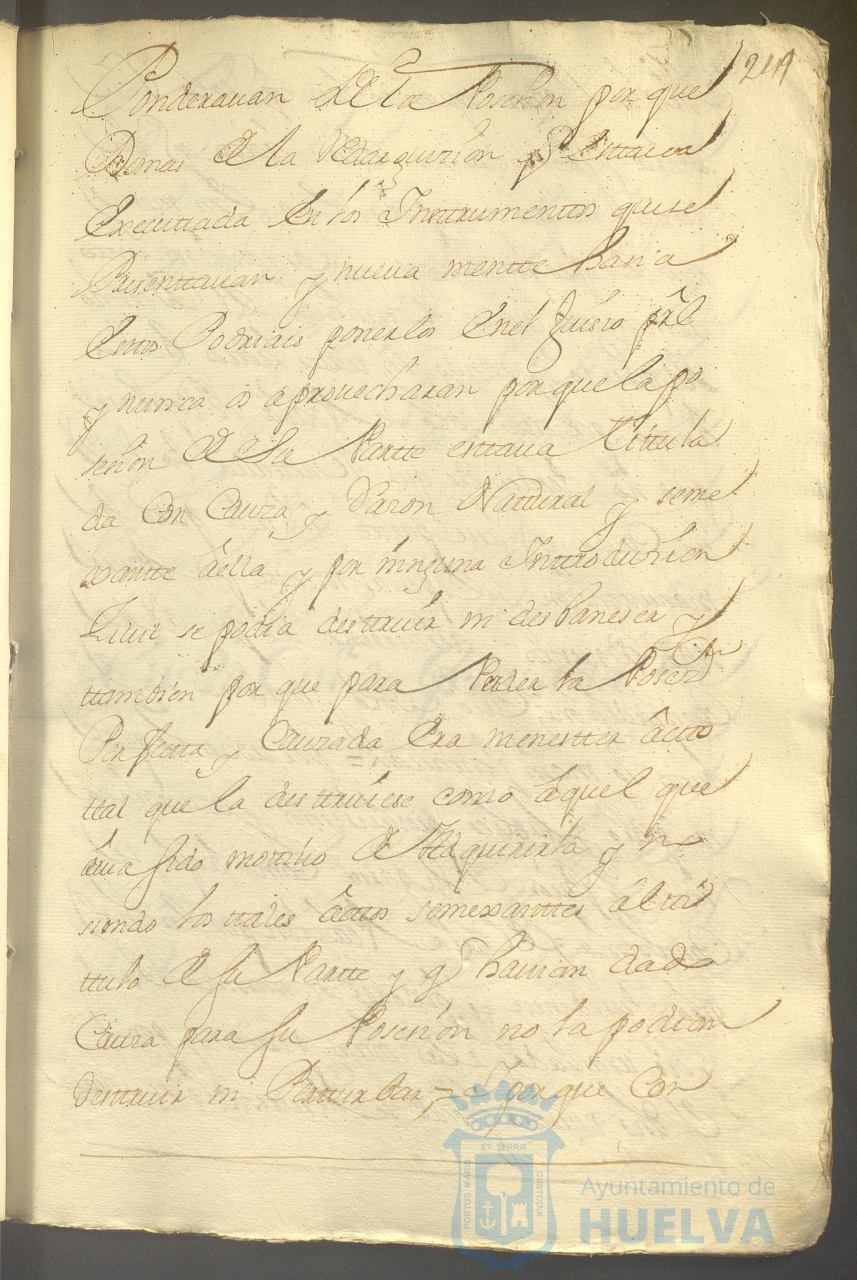 219
Ponderauan de la Poseſion por que
Demas de la Redarguizion q̃ Esttaua
Executtada En los Instrumentos que se
Presenttauan y nueua mentte hasia
Estos Podriais ponerlos En el Juisio prãl
y nunca os aprouecharan por que la po
sesion de su Partte esttaua tittula
da Con Cauza y Rason Natural y seme
xantte âella y por ninguna Inttroduzion
Ziuil se podia desttruir ni desbaneser y
ttambien por que para Perder la Posesⁿ
Perfectta y Cauzada Era menestter âctto
ttal que la desttruiese como âquel que
âuia sido mottibo de Adquirirla y no
siendo los ttales âctos semexanttes âl tti
ttulo de su Partte y q̃ hauian dado
Cauza para su Posesion no la podian
Desttruir ni Pertturbar = Y porque Con
ET TERRÆ
PORTUS MARIS
CUSTODIA
Ayuntamiento de
HUELVA